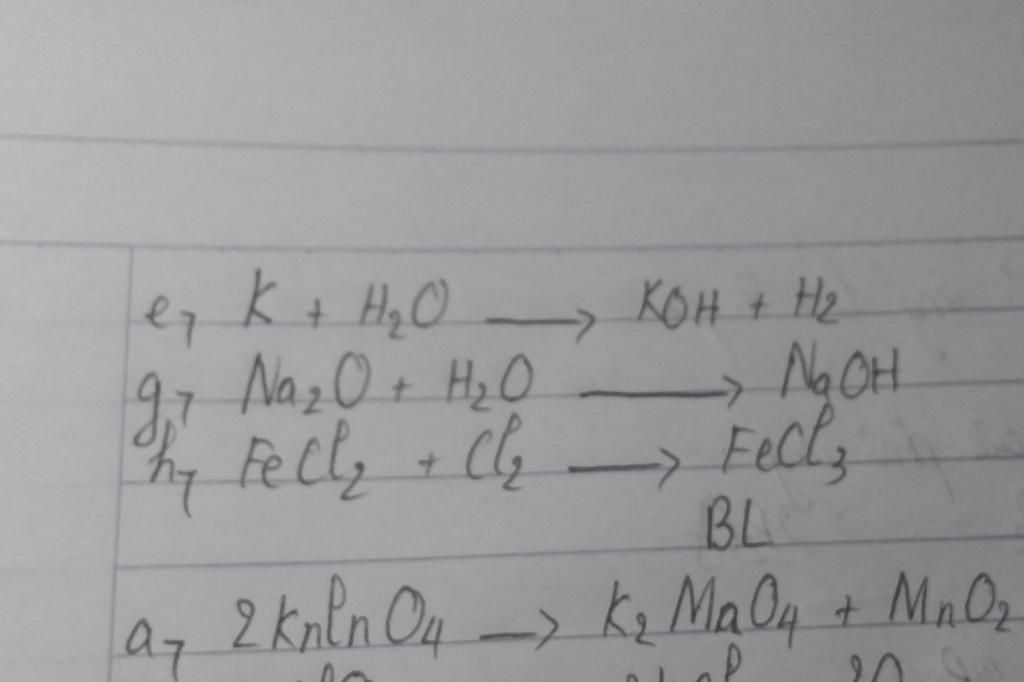 e, K + H₂O ⟶ KOH + H₂
g, Na₂O + H₂O ⟶ NaOH
h, FeCl₂ + Cl₂ ⟶ FeCl₃
BL
a, 2KMnO₄ ⟶ K₂MnO₄ + MnO₂